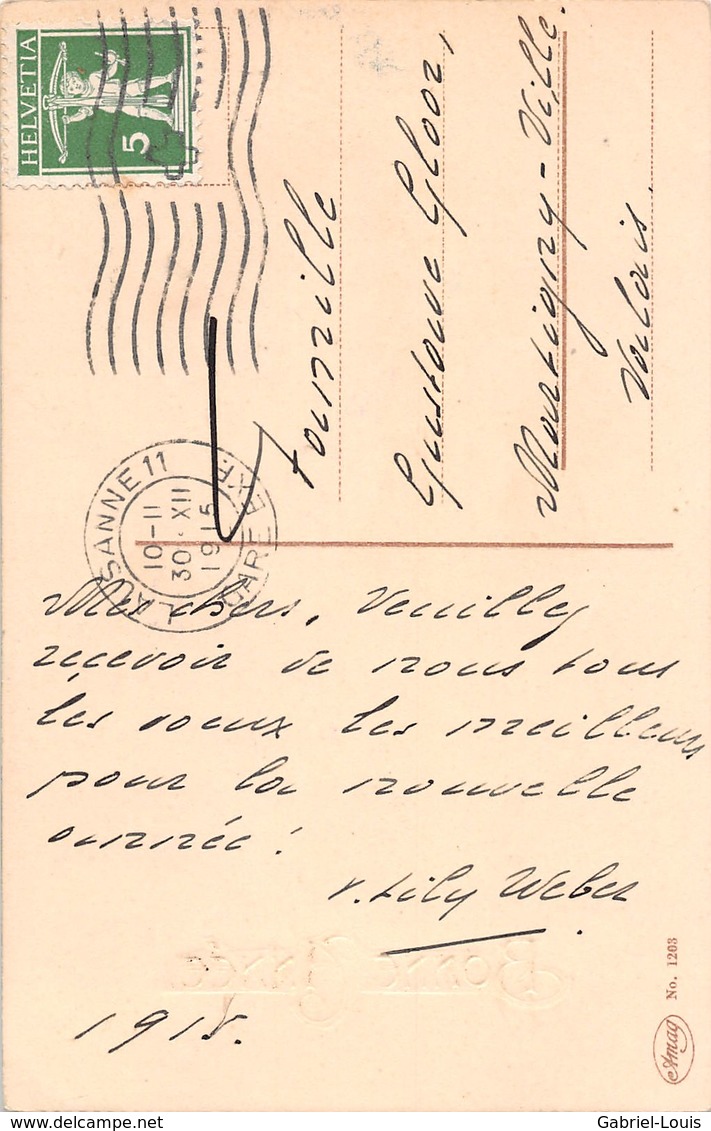 HELVETIA
5
LAUSANNE 11
GARE EXP.
10-11
30·XII
1915
Famille
Gustave Gloor,
Martigny-Ville.
Valais.
Mes chers, Veuillez
recevoir de nous tous
les voeux les meilleurs
pour la nouvelle
année!
v. Lily Weber
Bonne Année
1915.
Amag No. 1203
Gabriel-Louis